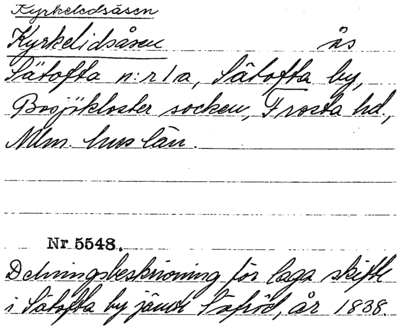 Kyrkeledsåsen
Kyrkelidsåsen ås
Sätofta n:r 1a, Sätofta by,
Bosjökloster socken, Frosta hd.,
Mlm. hus län.
Nr 5548.
Delningsbeskrivning för laga skifte
i Sätofta by jämte år 1838.